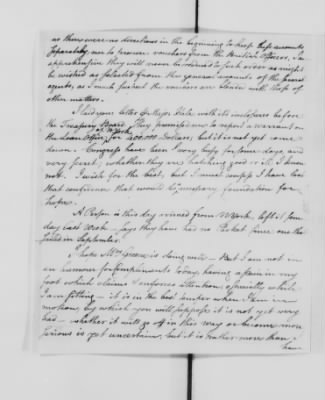 as there were no directions in the beginning to keep those accounts
separately, nor to procure vouchers from the Public Officers, I am
apprehensive they will never be ordered to such order as might
be wished as selected from the general accounts of the several
agents, as I much suspect the vouchers are blended with those of
other matters.
I laid your letter & Major Hale with its inclosures before
the Treasury Board. They promised me to report a warrant on
the Loan Office, N. York, for 200,000 Dollars, but it is not yet come
down. Congress have been very busy for some days, and
very secret, whether they are hatching good or ill I know
not. I wish for the best, but I must confess I have lost
that confidence that would be necessary foundation for
hopes.
A Person is this day arrived from N York, left it some
day last Week. says they have had no Packet since one that
sailed in September.
I hope Mrs Greene is doing well. But I am not in
an humour for Compliments today, having a pain in my
foot which claims & inforces attention, especially while
I am sitting. it is in the best temper when I am in
motion, by which you will suppose it is not yet very
bad. whether it will go off in this way or become more
serious is yet uncertain, but it is rather more than